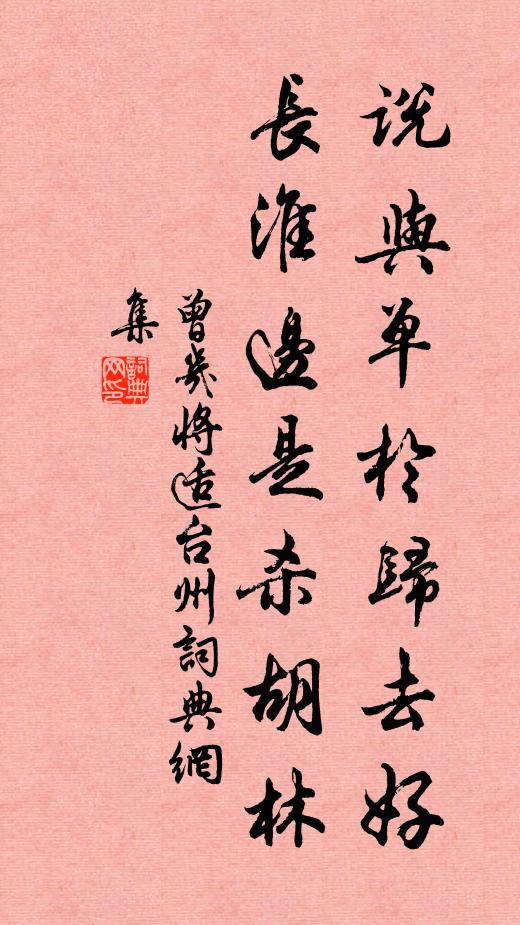 說與单於歸去好
長淮邊是杀胡林
曾幾將适台州詞典網
集
詞典網印